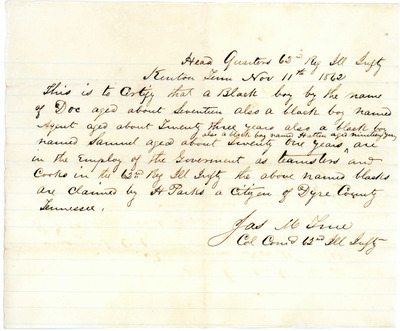 Head Quarters 62nd Reg Ill Infty
Kenton Tenn Nov 11th 1862
This is to Certify that a Black boy by the name
of Doc aged about Seventeen also a black boy named
Agent aged about Twenty three years also a black boy
& also a black boy named aged
named Samuel aged about Twenty One years, are
in the Employ of the Goverment as teamsters and
Cooks in the 62nd Reg Ill Infty the above named blacks
are claimed by H Parks a Citizen of Dyre County
Tennessee.
Jas M True
Col Comd 62nd Ill Infty